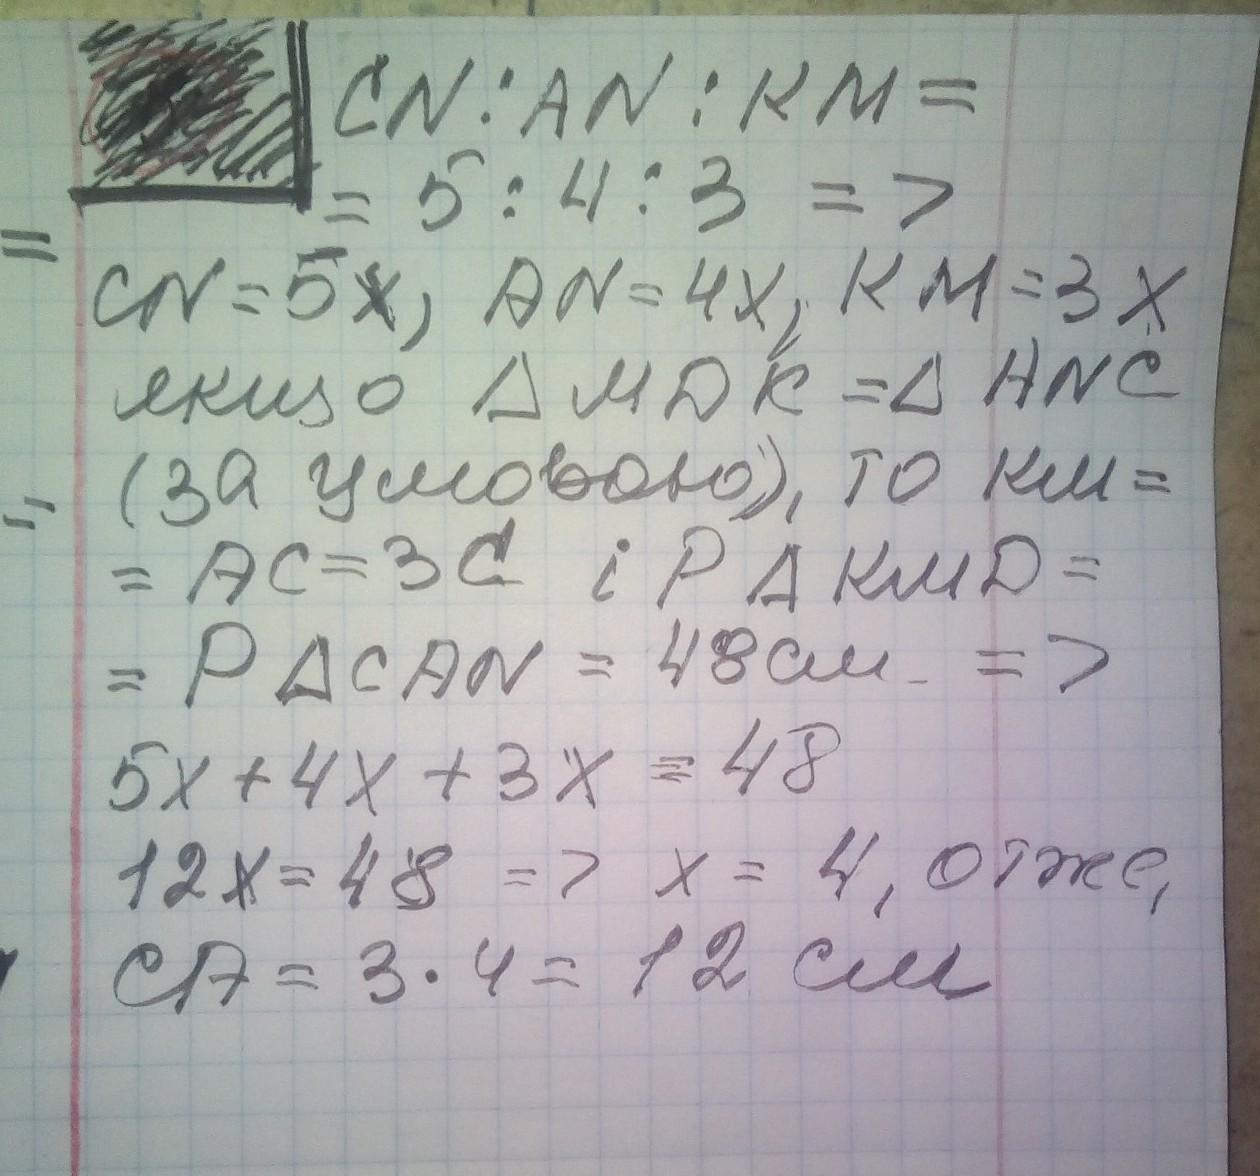 CN : AN : KM =
= 5 : 4 : 3 =>
=
CN = 5x, AN = 4x, KM = 3x
якщо Δ MDK = Δ ANC
(за умовою), то KM =
=
= AC = 3C і P Δ KMD =
= P Δ CAN = 48 см =>
5x + 4x + 3x = 48
12x = 48 => x = 4, отже,
CA = 3 · 4 = 12 см